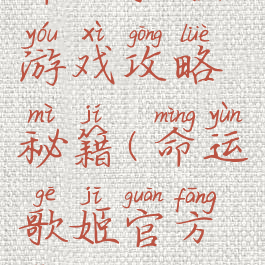 yóu xì gōng lüè
游戏攻略
mì jí mìng yùn
秘籍(命运
gē jī guān fāng
歌姬官方